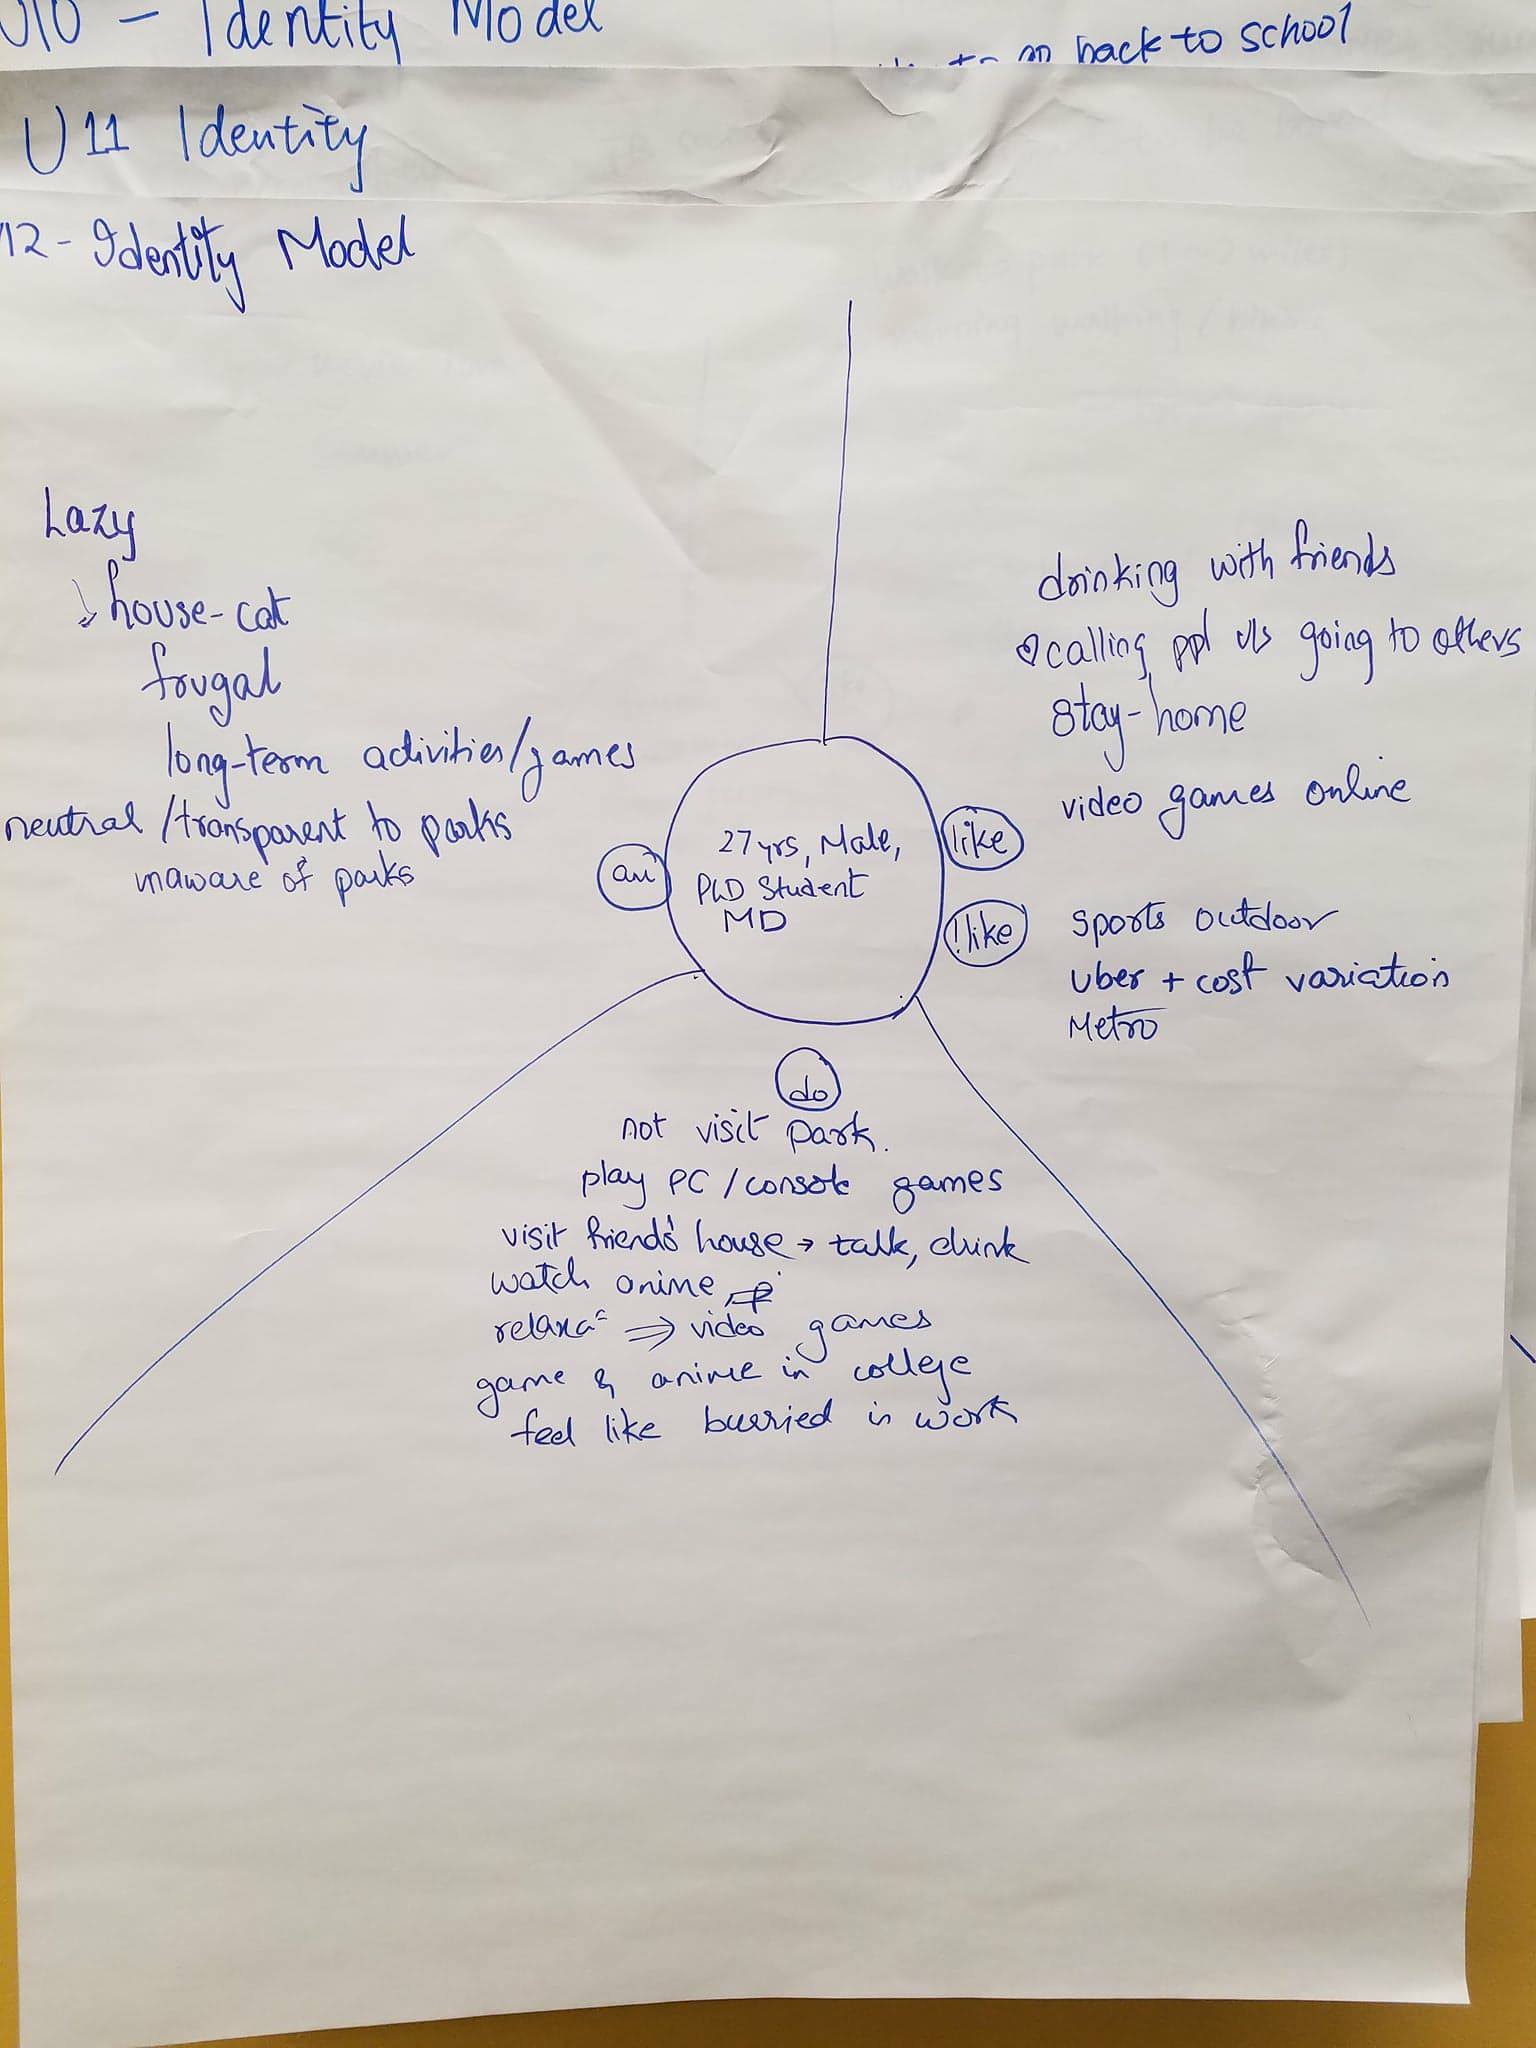 U10 - Identity Model
back to school
U11 Identity
U12 - Identity Model
Lazy
house-cat
frugal
long-term activities/games
neutral / transparent to parks
unaware of parks
am
27 yrs, Male,
PhD Student
MD
like
drinking with friends
calling ppl v/s going to others
stay-home
video games online
!like
sports outdoor
uber + cost variation
Metro
do
not visit park.
play PC / console games
visit friends' house → talk, drink
watch anime
relaxa⁼ ⇒ video games
game & anime in college
feel like burried in work